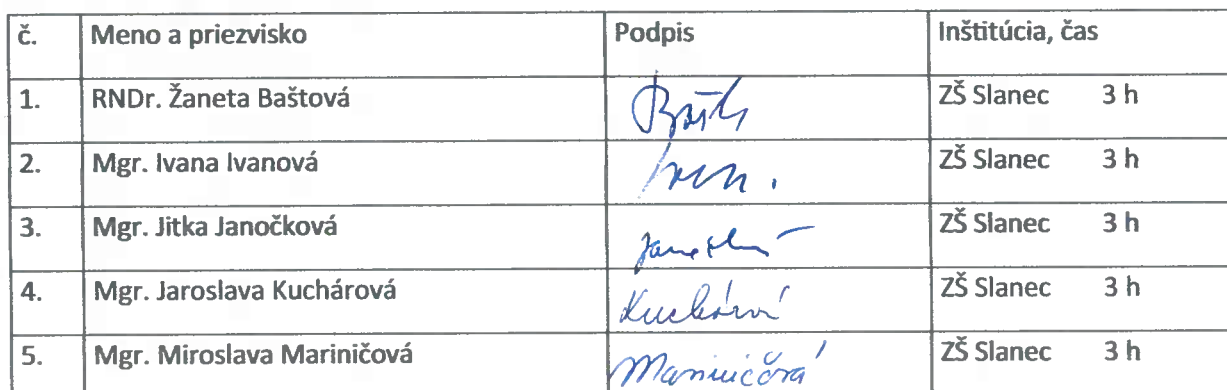 č. Meno a priezvisko Podpis Inštitúcia, čas
1. RNDr. Žaneta Baštová ZŠ Slanec 3 h
2. Mgr. Ivana Ivanová ZŠ Slanec 3 h
3. Mgr. Jitka Janočková ZŠ Slanec 3 h
4. Mgr. Jaroslava Kuchárová Kuchárová ZŠ Slanec 3 h
5. Mgr. Miroslava Mariničová Mariničová ZŠ Slanec 3 h